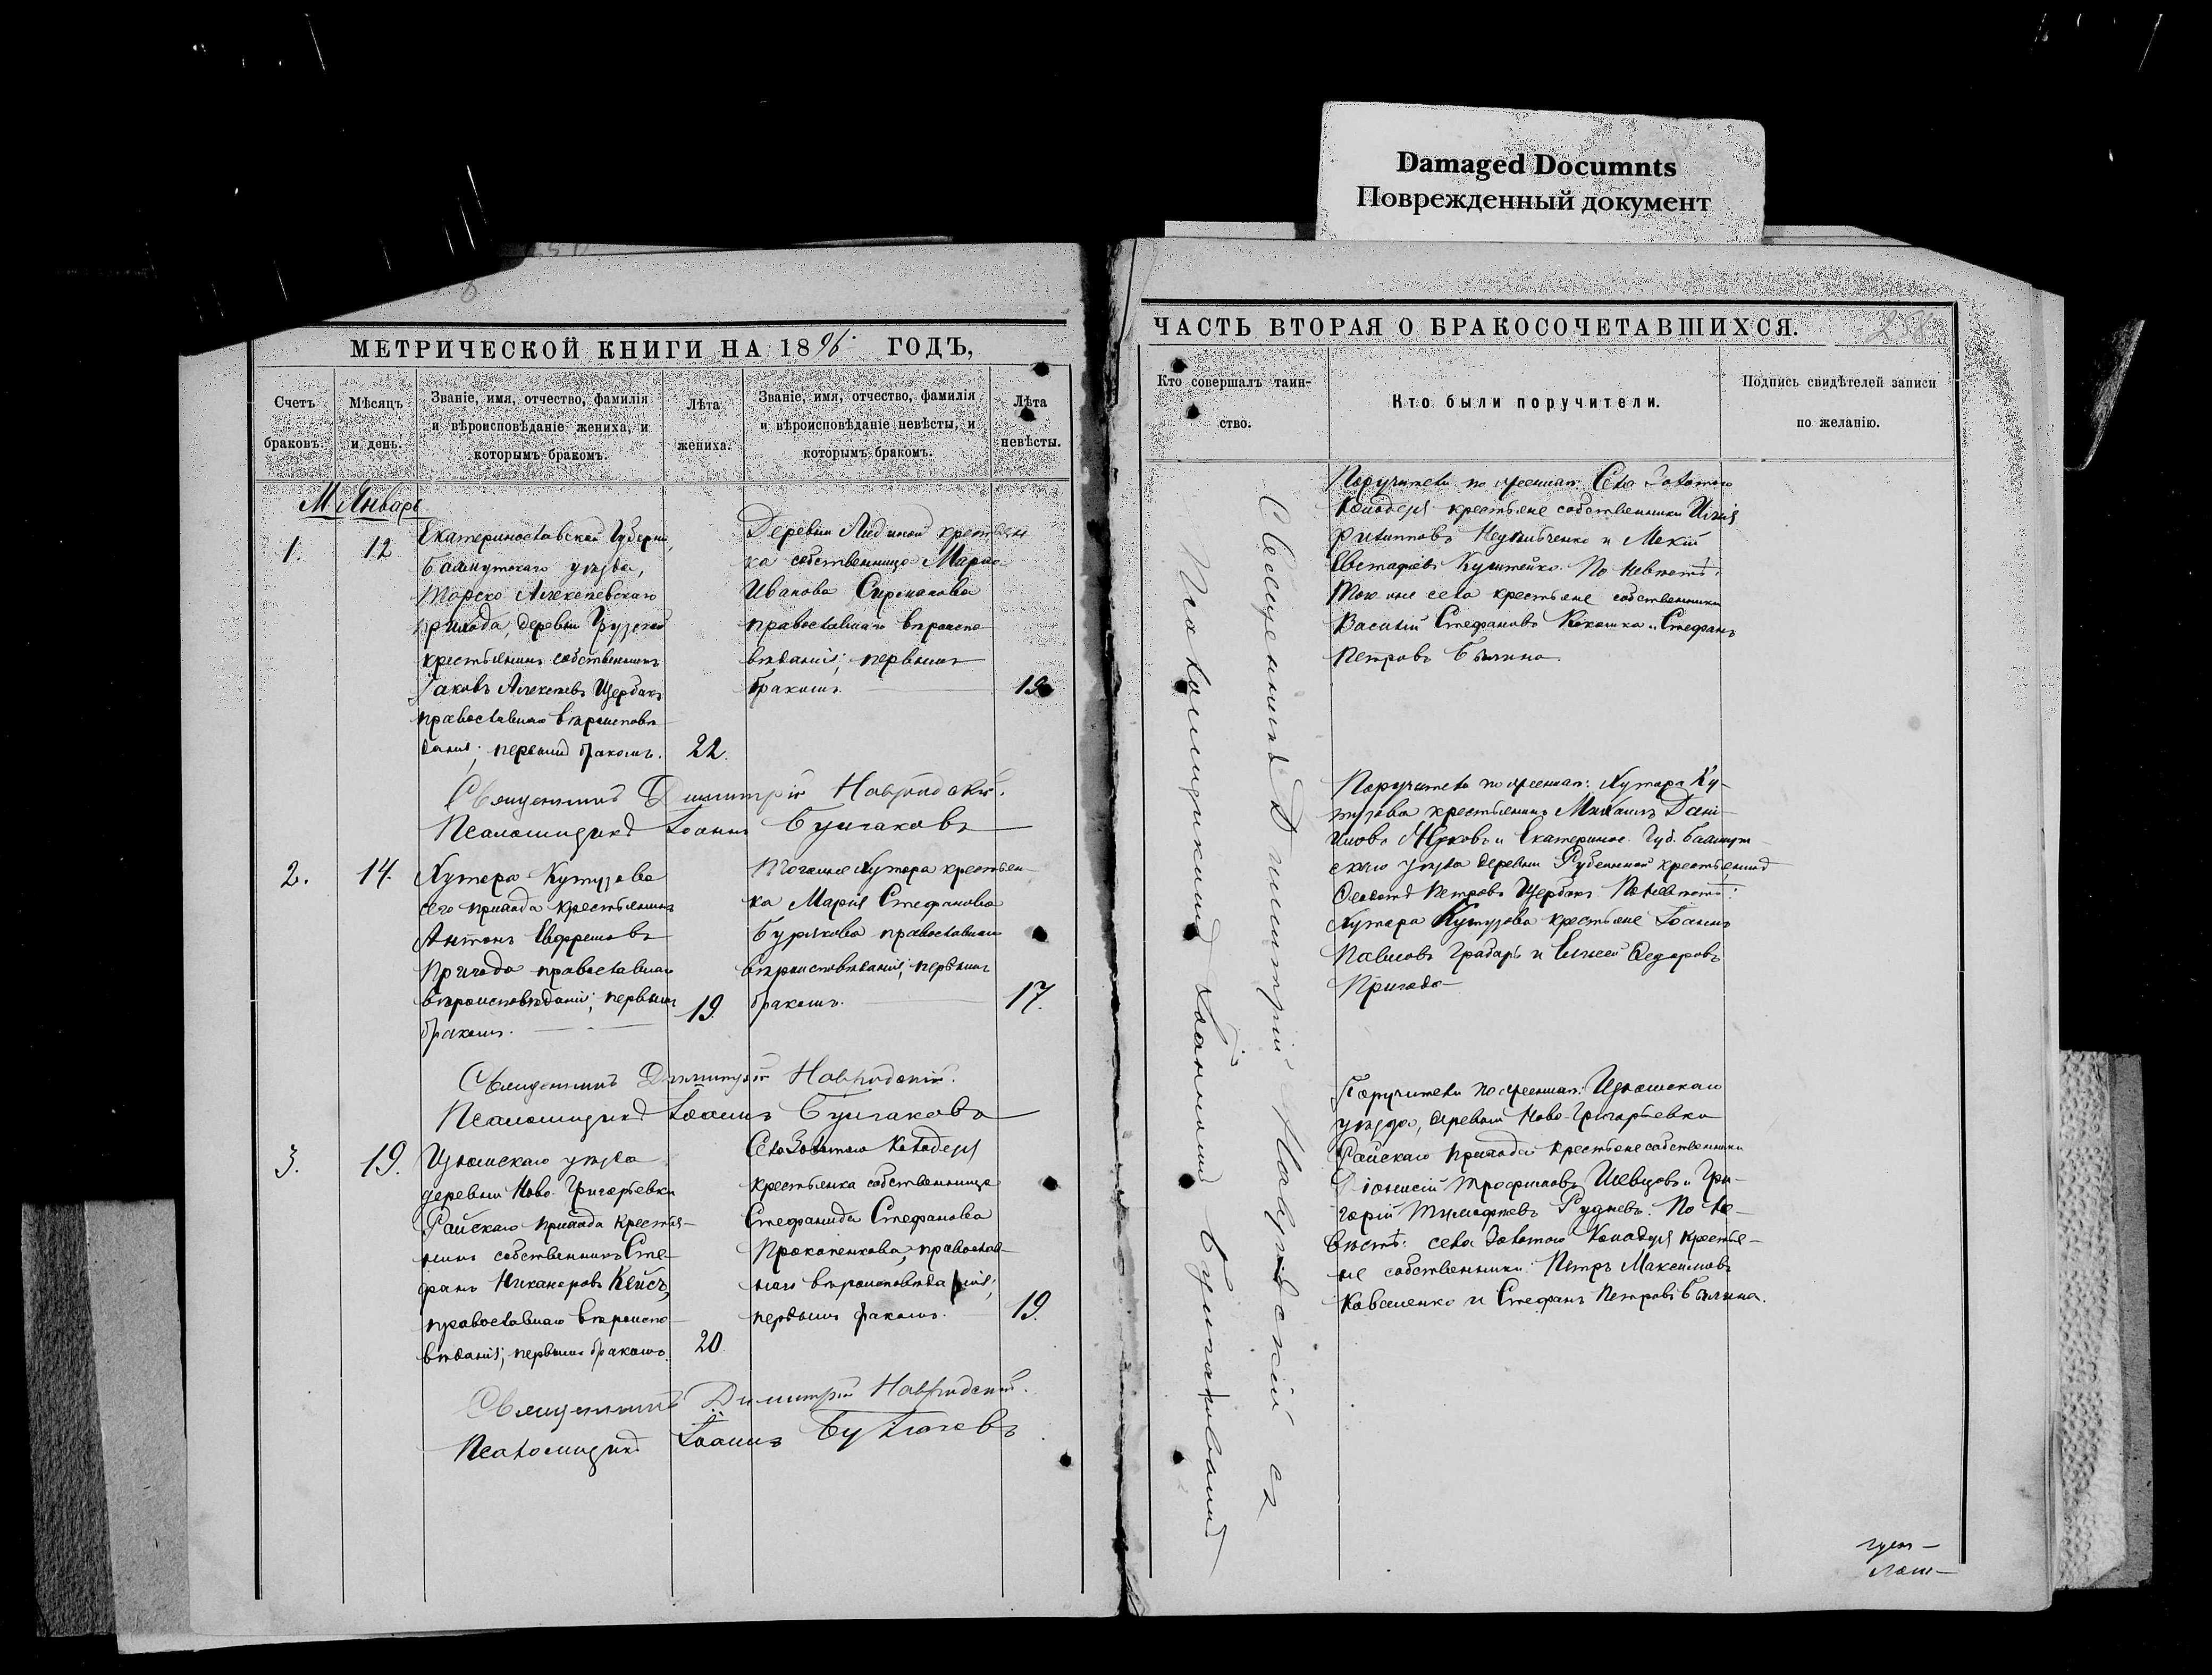 Damaged Documnts
Поврежденный документ
МЕТРИЧЕСКОЙ КНИГИ НА 1896 ГОДЪ,
Счетъ браковъ.
Мѣсяцъ и день.
Званіе, имя, отчество, фамилія
и вѣроисповѣданіе жениха, и
которымъ бракомъ.
Лѣта жениха.
Званіе, имя, отчество, фамилія
и вѣроисповѣданіе невѣсты, и
которымъ бракомъ.
Лѣта невѣсты.
М. Январь
1.
12
Екатеринославской Губерніи,
Бахмутскаго уѣзда,
Торско-Алексѣевскаго
прихода, деревни
крестьянинъ собственникъ
Іаковъ Алексѣевъ Щербакъ
православнаго вѣроисповѣ-
данія; первымъ бракомъ.
22.
Деревни крестьян
ка собственница Марія
Иванова
православнаго вѣроиспо-
вѣданія; первымъ
бракомъ.
19
Священникъ Димитрій
Псаломщикъ Іоаннъ Булгаковъ
2.
14.
Хутора Кутузова
сего прихода крестьянинъ
Антонъ Евфремовъ
Пригода православнаго
вѣроисповѣданія; первымъ
бракомъ.
19.
Того же хутора крестьян-
ка Марія Стефанова
Бурякова православнаго
вѣроисповѣданія; первымъ
бракомъ.
17.
Священникъ Димитрій
Псаломщикъ Іоаннъ Булгаковъ
3.
19.
Изюмскаго уѣзда
деревни Ново-Григорьевки
Райскаго прихода крестья-
нинъ собственникъ Сте-
фанъ Никаноровъ Кейсъ,
православнаго вѣроиспо-
вѣданія; первымъ бракомъ.
20.
Села Золотаго Колодезя
крестьянка собственница
Стефанида Стефанова
Прокопенкова, православ-
наго вѣроисповѣданія;
первымъ бракомъ.
19.
Священникъ Димитрій
Псаломщикъ Іоаннъ Булгаковъ
ЧАСТЬ ВТОРАЯ О БРАКОСОЧЕТАВШИХСЯ.
258
Кто совершалъ таин-
ство.
Кто были поручители.
Подпись свидѣтелей записи
по желанію.
Священникъ Димитрій съ
Псаломщикомъ Іоанномъ Булгаковымъ
Поручители по женихѣ: Села Золотаго
Колодезя крестьяне собственники Илія
Филипповъ и Мокій
Евстафіевъ По невѣстѣ:
Того же села крестьяне собственники
Василій Стефановъ Кокошка и Стефанъ
Петровъ Былина.
Поручители по женихѣ: Хутора Ку-
тузова крестьянинъ Михаилъ Дани-
иловъ и Екатеринос. Губ. Бахмут-
скаго уѣзда деревни крестьянинъ
Петровъ Щербакъ. По невѣстѣ:
Хутора Кутузова крестьяне Іоаннъ
Павловъ Грабарь и Елисей Ѳедоровъ
Пригода
Поручители по женихѣ: Изюмскаго
уѣзда, деревни Ново-Григорьевки
Райскаго прихода крестьяне собственники
Діонисій Трофимовъ Шевцовъ и Гри-
горій Тимофѣевъ Рудневъ. По не-
вѣстѣ: села Золотаго Колодезя крестья-
не собственники: Петръ Максимовъ
Коваленко и Стефанъ Петровъ Былина.